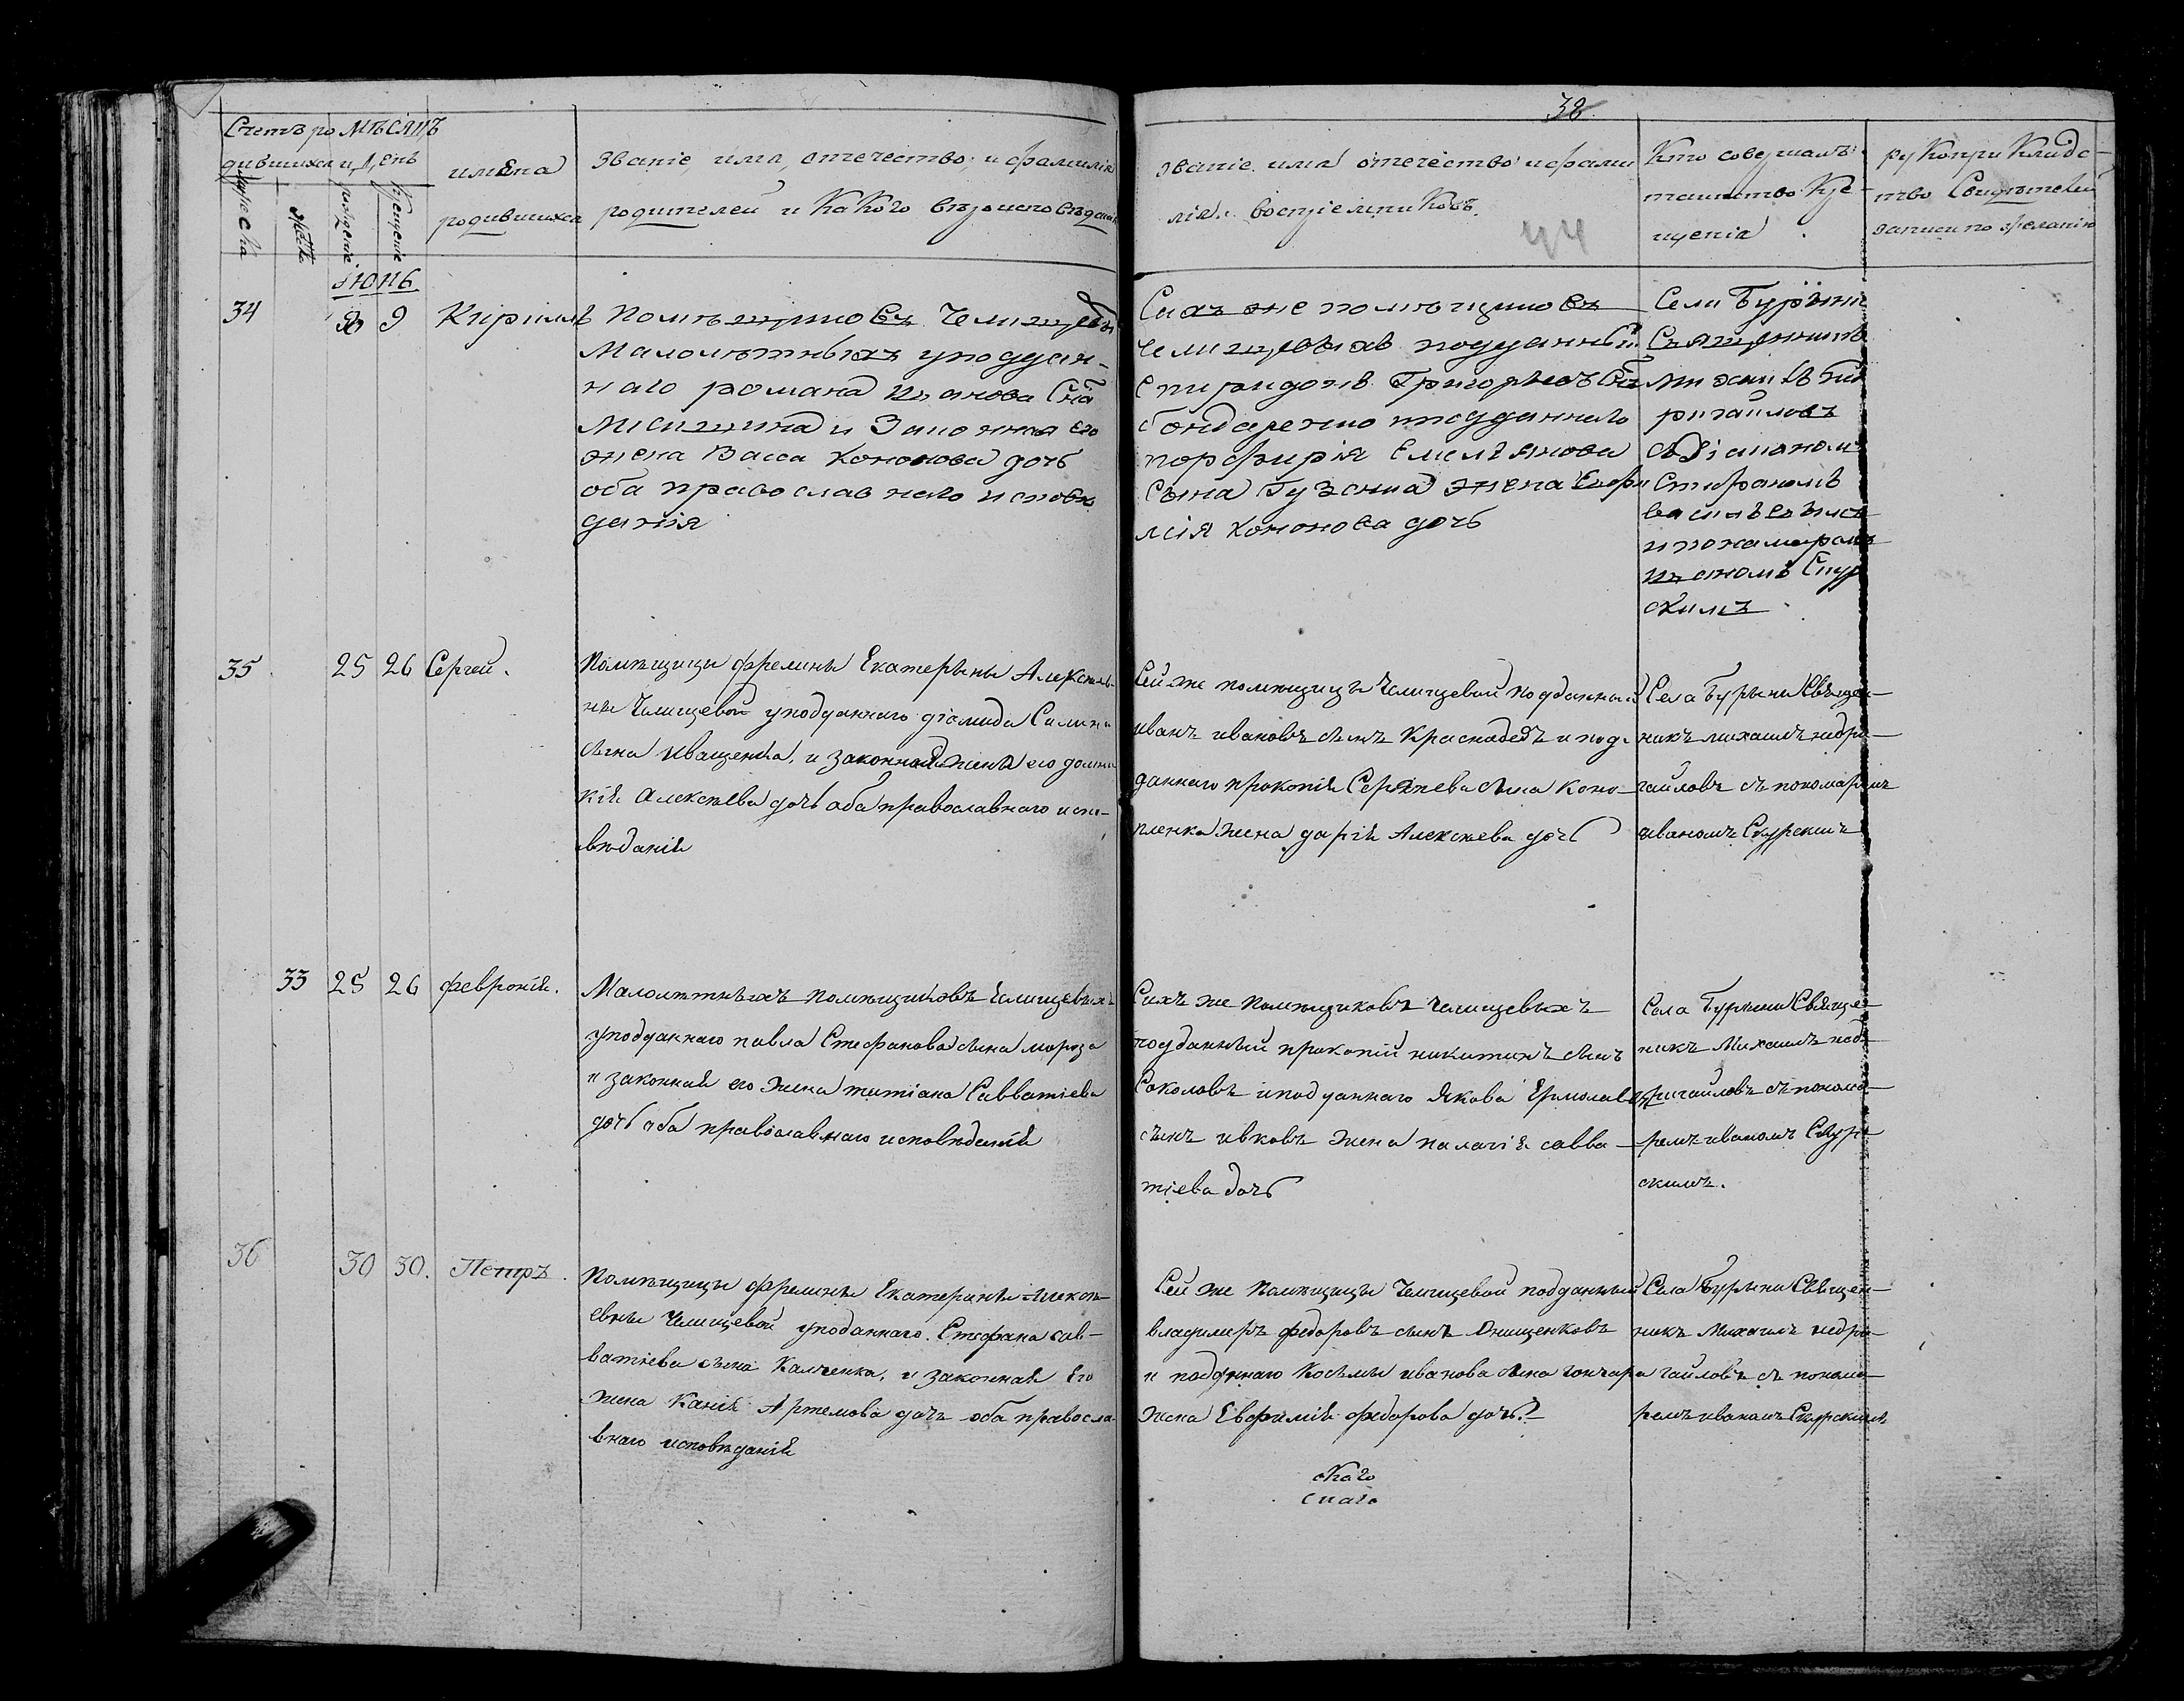 38
Счетъ ро
дившихся
Мѣсяцъ
и день
мужеска
женска
рожденіе
Крещеніе
имена
родившихся
Званіе, имя, отечество, и фамилія
родителей и Какого вѣроисповѣданія
званіе имя отечество и фами
лія воспріемниковъ
44
Кто совершалъ
таинство Кре
щенія
рукоприкладс
тво Свидѣтелей
записи по желанію
іюнь
34
8 9
Кириллъ
Помѣщиковъ Челищевыхъ
Малолѣтныхъ уподдан-
наго романа иванова сна
и Законная его
жена Васса Кононова дочь
оба православнаго исповѣ
данія
Сихъ же помѣщиковъ
челищевыхъ подданный
Спиридонъ Григорьевъ снъ
бондаренко подданнаго
порфирія Емельянова
сына Гузенка жена Евфи
мія Кононова дочь
Села Бурыни
Священникъ
михаилъ нед
ригайловъ
съ діакономъ
Стефаномъ
васильевымъ
и пономаремъ
иваномъ Скур
скимъ
35
25 26
Сергей.
Помѣщицы фрелины Екатерины Алексеев
ны Челищевой уподданнаго діомида
сына Иващенка, и законной жены его домни
кіи Алексѣева дочь оба православнаго испо-
вѣданія
Сей же помѣщицы Челищевой подданный
иванъ ивановъ сынъ Краснодедъ и под-
даннаго прокопія Сергѣева сына Коно-
пленка жена дарія Алексѣева дочь
Села Бурыни Священ-
никъ михаилъ недри-
гайловъ съ пономаремъ
иваномъ Скурскимъ
33
25 26
февронія.
Малолѣтныхъ помѣщиковъ Челищевыхъ
уподданнаго павла Стефанова сына мороза
и законная его жена титіана Савватіева
дочь оба православнаго исповѣданія
Сихъ же помѣщиковъ челищевыхъ
подданный прокопій никитинъ сынъ
Соколовъ иподданнаго Якова Ермолаева
сынъ ивковъ жена палагія савва-
тіева дочь
Села Бурыни Священ
никъ Михаилъ нед
ригайловъ съ понома-
ремъ иваномъ Скур-
скимъ.
36
30 30.
Петръ.
Помѣщицы фрелины Екатерины Алексѣ-
евны Челищевой уподданнаго. Стефана сав-
ватіева сына Калченка, и законная Его
жена Артемова дочь оба правосла
внаго исповѣданія
Сей же Помѣщицы Челищевой подданный
владимеръ федоровъ сынъ Онищенковъ
и подданнаго Космы иванова сына гончара
жена Евфимія федорова дочь.
Села Бурыни Священ-
никъ Михаилъ недри-
гайловъ съ понома-
ремъ иваномъ Скурскимъ
скаго